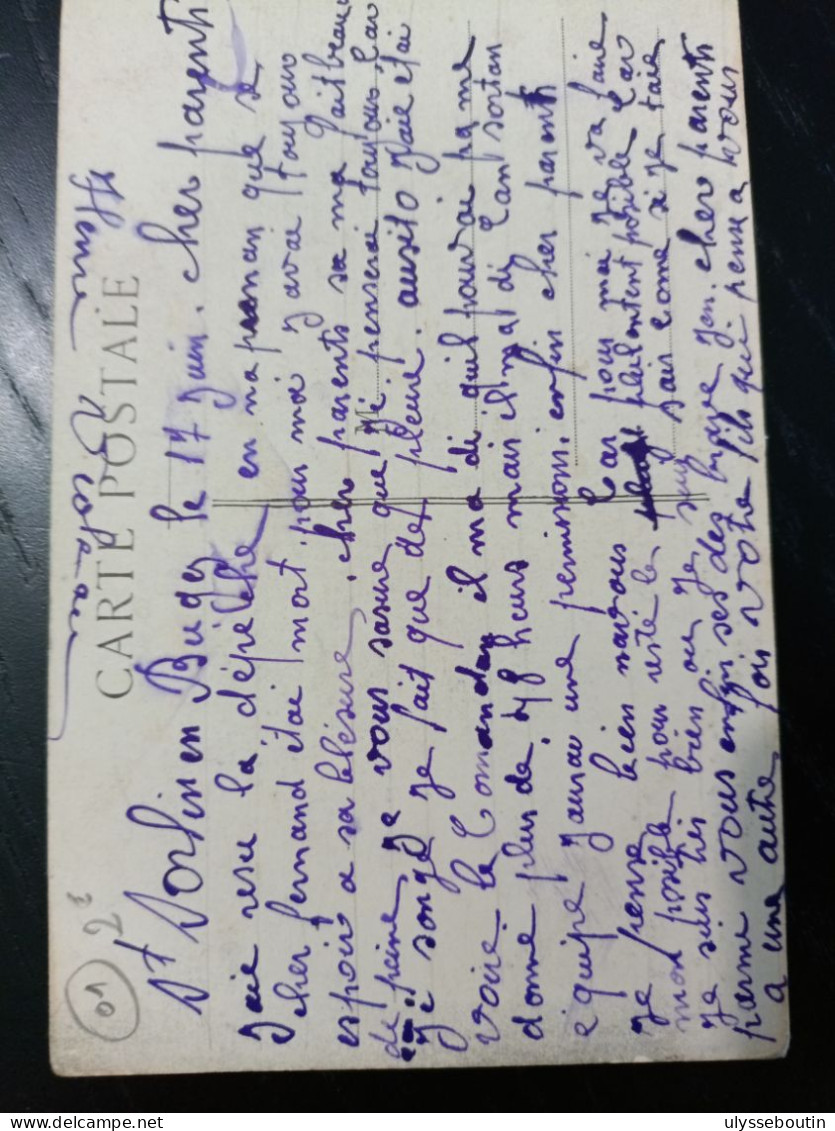 CARTE POSTALE
01 2
St Vorlin en Bugey le 17 Juin. cher parents
Jaie resu la dépèche en maprenan que se
cher fernand étai mort pour moi javai toujour
espoir a sa blésure. cher parents sa ma fait beaucou
de peine, Je vous sasure que Jé penserai toujour. Car
Jé songé Je fait que de pleuré. ausito Jaie étai
voire le Comandan il ma di quil pouvai pa me
donné plus de 48 heurs mais il ma di Can sortan
équipé J'aurau une permissions. enfin cher parents
Je pense bien navous Car pour moi Je va faire
mon posible pour resté le plulontent posible Car
Je suis trés bien ou Je suis sais come si Je taie
parmé vous enfin ses dez brave jen. cher parents
a une autre fois votre fils qui pense a vous
Etienne
ulysseboutin